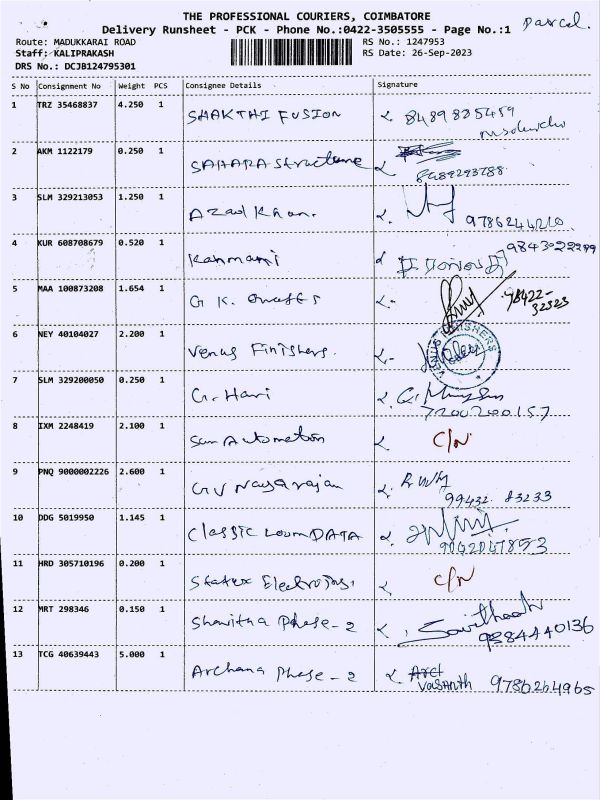 THE PROFESSIONAL COURIERS, COIMBATORE
Delivery Runsheet - PCK - Phone No.:0422-3505555 - Page No.:1
Parcel
Route: MADUKKARAI ROAD RS No.: 1247953
Staff: KALIPRAKASH RS Date: 26-Sep-2023
DRS No.: DCJB124795301
S No Consignment No Weight PCS Consignee Details Signature
1 TRZ 35468837 4.250 1 SHAKTHI FUSION 8489835459
2 AKM 1122179 0.250 1 SAHARA Structure 8489293788
3 SLM 329213053 1.250 1 Azad Khan. 9786244210
4 KUR 608708679 0.520 1 Kanmani 9843022299
5 MAA 100873208 1.654 1 G K. 98422-
32323
6 NEY 40104027 2.200 1 Venus Finishers. VENUS FINISHERS
7 SLM 329200050 0.250 1 G. Hari
7200200157
8 IXM 2248419 2.100 1 Sun Automation C/N
9 PNQ 9000002226 2.600 1 GV Nagarajan
99432 83233
10 DDG 5019950 1.145 1 Classic Loom DATA
9042047853
11 HRD 305710196 0.200 1 Statex Electrojos. C/N
12 MRT 298346 0.150 1 Shawitha Phase-2
9884440136
13 TCG 40639443 5.000 1 Archana Phase-2
Vasanth 9786264965